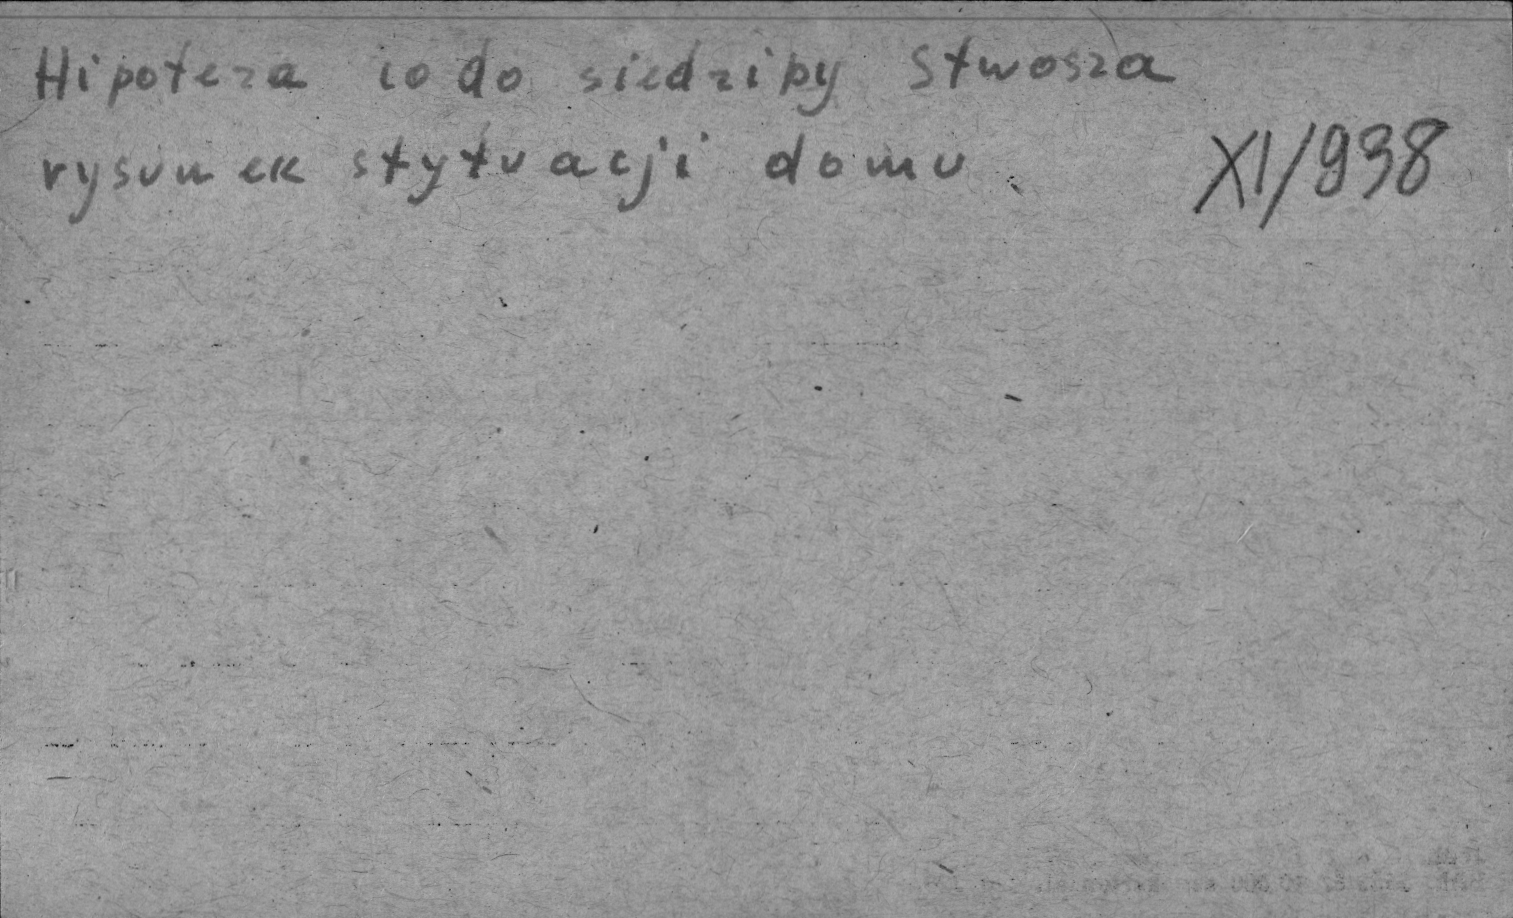 Hipoteza co do siedziby Stwosza
rysunek stytuacji domu
XI/938